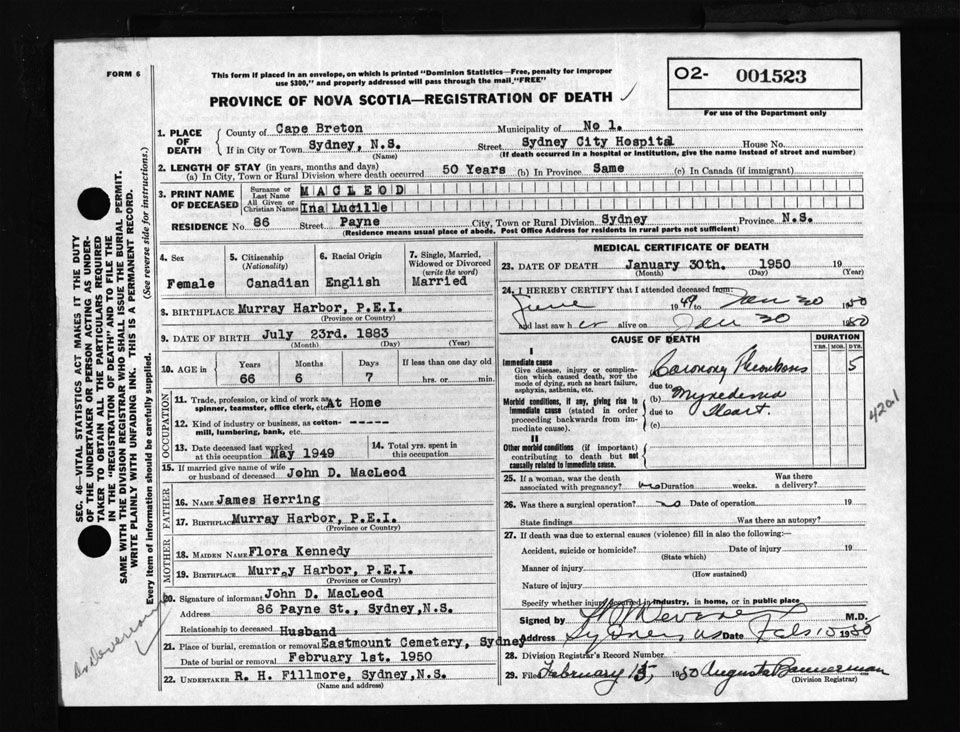 FORM 6
This form if placed in an envelope, on which is printed "Dominion Statistics—Free, penalty for improper
use $300," and properly addressed will pass through the mail, "FREE"
O2- 001523
For use of the Department only
PROVINCE OF NOVA SCOTIA—REGISTRATION OF DEATH
1. PLACE OF DEATH County of Cape Breton Municipality of No 1.
If in City or Town Sydney, N.S. Street Sydney City Hospital House No.
(Name) (If death occurred in a hospital or institution, give the name instead of street and number)
2. LENGTH OF STAY (in years, months and days)
(a) In City, Town or Rural Division where death occurred 50 Years (b) In Province Same (c) In Canada (if immigrant)
3. PRINT NAME OF DECEASED Surname or Last Name MACLEOD
All Given or Christian Names Ina Lucille
RESIDENCE No. 86 Street Payne City, Town or Rural Division Sydney Province N.S.
(Residence means usual place of abode. Post Office Address for residents in rural parts not sufficient)
4. Sex 5. Citizenship (Nationality) 6. Racial Origin 7. Single, Married, Widowed or Divorced (write the word)
Female Canadian English Married
8. BIRTHPLACE Murray Harbor, P.E.I.
(Province or Country)
9. DATE OF BIRTH July 23rd. 1883
(Month) (Day) (Year)
10. AGE in Years Months Days If less than one day old
66 6 7 hrs. or min.
OCCUPATION
11. Trade, profession, or kind of work as
spinner, teamster, office clerk, etc. At Home
12. Kind of industry or business, as cotton-
mill, lumbering, bank, etc. -----
13. Date deceased last worked
at this occupation May 1949
14. Total yrs. spent in
this occupation
15. If married give name of wife
or husband of deceased John D. MacLeod
FATHER
16. NAME James Herring
17. BIRTHPLACE Murray Harbor, P.E.I.
(Province or Country)
MOTHER
18. MAIDEN NAME Flora Kennedy
19. BIRTHPLACE Murray Harbor, P.E.I.
(Province or Country)
20. Signature of informant John D. MacLeod
Address 86 Payne St., Sydney, N.S.
Relationship to deceased Husband
21. Place of burial, cremation or removal Eastmount Cemetery, Sydney
Date of burial or removal February 1st. 1950
22. UNDERTAKER R. H. Fillmore, Sydney, N.S.
(Name and address)
MEDICAL CERTIFICATE OF DEATH
23. DATE OF DEATH January 30th. 1950 19
(Month) (Day) (Year)
24. I HEREBY CERTIFY that I attended deceased from:
June 1949 to Jan 30 1950
and last saw her alive on Jan 30 1950
CAUSE OF DEATH
DURATION
YRS. MOS. DYS.
I
Immediate cause
Give disease, injury or complica-
tion which caused death, NOT the
mode of dying, such as heart failure,
asphyxia, asthenia, etc.
Coronary Thrombosis 5
due to
Morbid conditions, if any, giving rise to
immediate cause (stated in order
proceeding backwards from im-
mediate cause).
(b) Myxedema
due to Heart.
(c)
4201
II
Other morbid conditions (if important)
contributing to death but not
causally related to immediate cause.
25. If a woman, was the death
associated with pregnancy? no Duration weeks. Was there
a delivery?
26. Was there a surgical operation? no Date of operation 19
State findings Was there an autopsy?
27. If death was due to external causes (violence) fill in also the following:—
Accident, suicide or homicide? Date of injury 19
(State which)
Manner of injury
(How sustained)
Nature of injury
Specify whether injury occurred in industry, in home, or in public place
Signed by M.D.
Address Sydney NS Date Feb 10 1950
28. Division Registrar's Record Number
29. Filed February 15, 1950 Augusta Bannerman
(Division Registrar)
SEC. 46—VITAL STATISTICS ACT MAKES IT THE DUTY
OF THE UNDERTAKER OR PERSON ACTING AS UNDER-
TAKER TO OBTAIN ALL THE PARTICULARS REQUIRED
IN THE "REGISTRATION OF DEATH" AND TO FILE THE
SAME WITH THE DIVISION REGISTRAR WHO SHALL ISSUE THE BURIAL PERMIT.
WRITE PLAINLY WITH UNFADING INK. THIS IS A PERMANENT RECORD.
Every item of information should be carefully supplied. (See reverse side for instructions.)